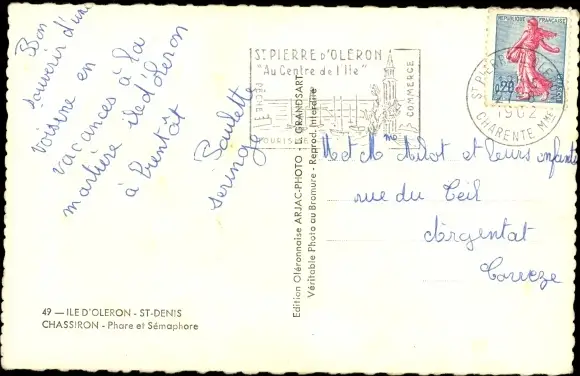 Bon
souvenir d'une
voisine en
vacances à la
martière ile d'oleron
à bientôt
Paulette
seringe
49 — ILE D'OLERON - ST-DENIS
CHASSIRON - Phare et Sémaphore
Edition Oléronnaise ARJAC-PHOTO - GRANDSART
Véritable Photo au Bromure - Reprod. Interdite
ST PIERRE D'OLERON
"Au Centre de l'Ile"
PECHE
COMMERCE
TOURISME
REPUBLIQUE FRANÇAISE
0,20
ST PIERRE
1962
CHARENTE Mme
M et Mme et leurs enfants
rue du Teil
d'Argentat
Correze